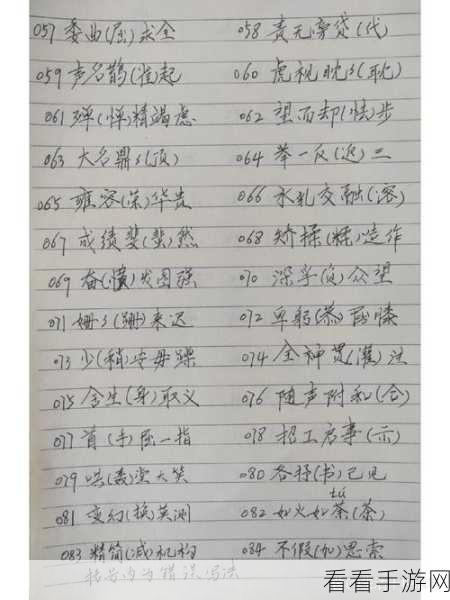 057 委曲(屈)求全 058 责无旁贷(代)
059 声名鹊(雀)起 060 虎视眈々(耽)
061 殚(惮)精竭虑 062 望而却(怯)步
063 大名鼎々(顶) 064 举一反(返)三
065 雍容(荣)华贵 066 水乳交融(溶)
067 成绩斐(蜚)然 068 矫揉(糅)造作
069 奋(愤)发图强 070 深孚(负)众望
071 姗々(跚)来迟 072 卑躬(恭)屈膝
073 少(稍)安毋躁 074 全神贯(灌)注
075 舍生(身)取义 076 随声附和(合)
077 首(手)屈一指 078 招工启事(示)
079 哄(轰)堂大笑 080 各抒(书)己见
081 变幻(换)莫测 082 如火如荼(茶) tú
083 精简(减)机构 084 不假(加)思索
括号内为错误写法
看看手游网
www.kkssyy.com